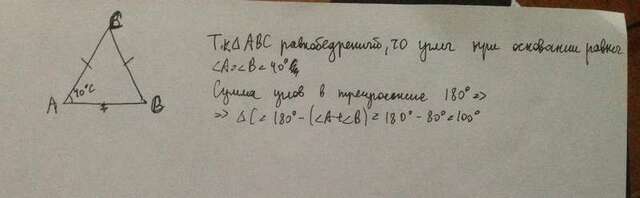 C
A
40°C
B
Т.к ΔABC равнобедренный, то углы при основании равны
∠A=∠B=40°
Сумма углов в треугольнике 180° =>
=> ∠C=180°-(∠A+∠B)=180°-80°=100°